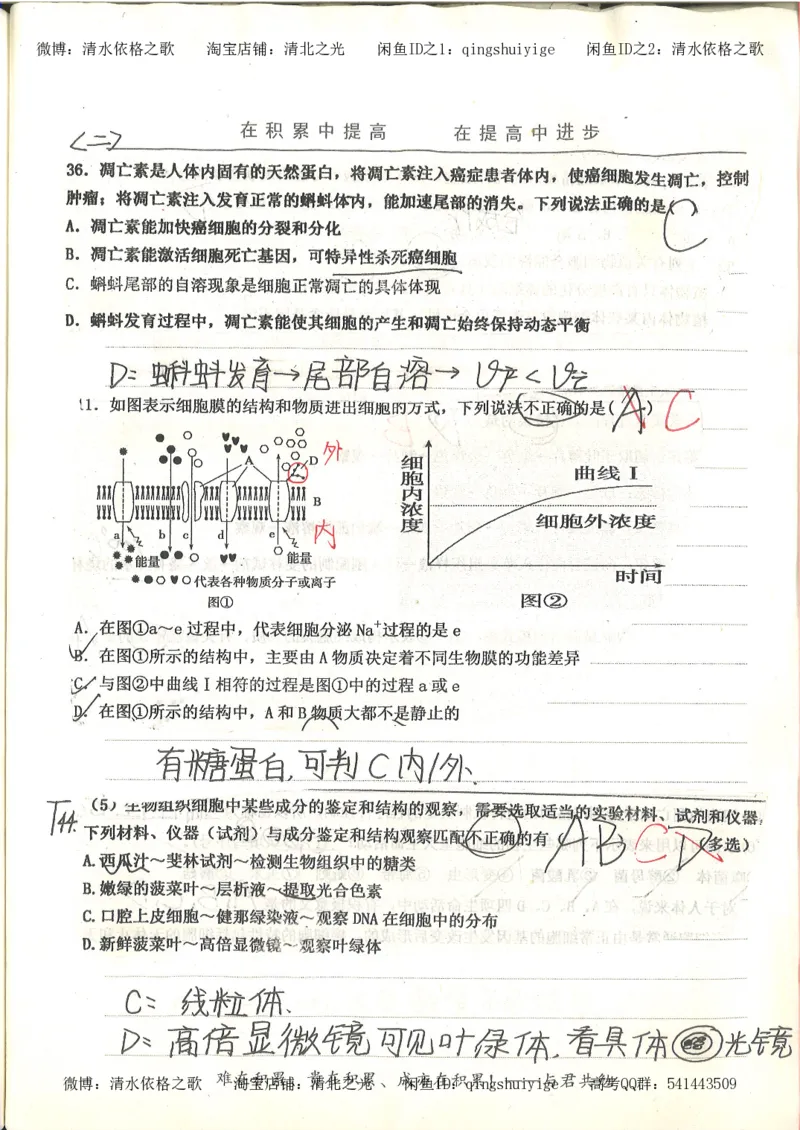 微博：清水依格之歌 淘宝店铺：清北之光 闲鱼ID之1：qingshuiyige 闲鱼ID之2：清水依格之歌
在积累中提高 在提高中进步
<二>
36．凋亡素是人体内固有的天然蛋白，将凋亡素注入癌症患者体内，使癌细胞发生凋亡，控制
肿瘤；将凋亡素注入发育正常的蝌蚪体内，能加速尾部的消失。下列说法正确的是( C )
A．凋亡素能加快癌细胞的分裂和分化
B．凋亡素能激活细胞死亡基因，可特异性杀死癌细胞
C．蝌蚪尾部的自溶现象是细胞正常凋亡的具体体现
D．蝌蚪发育过程中，凋亡素能使其细胞的产生和凋亡始终保持动态平衡
D：蝌蚪发育→尾部自溶→
11．如图表示细胞膜的结构和物质进出细胞的方式，下列说法不正确的是( A ) C
外
A D
B
a b c d e
内
能量 能量
代表各种物质分子或离子
图①
细胞内浓度
曲线Ⅰ
细胞外浓度
时间
图②
A．在图①a～e过程中，代表细胞分泌Na⁺过程的是e
B．在图①所示的结构中，主要由A物质决定着不同生物膜的功能差异
C．与图②中曲线Ⅰ相符的过程是图①中的过程a或e
D．在图①所示的结构中，A和B物质大都不是静止的
有糖蛋白，可判C内/外.
T44.
(5) 生物组织细胞中某些成分的鉴定和结构的观察，需要选取适当的实验材料、试剂和仪器，
下列材料、仪器（试剂）与成分鉴定和结构观察匹配不正确的有( ABCD )(多选)
A.西瓜汁～斐林试剂～检测生物组织中的糖类
B.嫩绿的菠菜叶～层析液～提取光合色素
C.口腔上皮细胞～健那绿染液～观察DNA在细胞中的分布
D.新鲜菠菜叶～高倍显微镜～观察叶绿体
C：线粒体.
D：高倍显微镜可见叶绿体，看具体 光镜
难在积累、 在积累、成 在积累! 与君共勉
微博：清水依格之歌 淘宝店铺：清北之光 闲鱼ID：qingshuiyige 高考QQ群：541443509